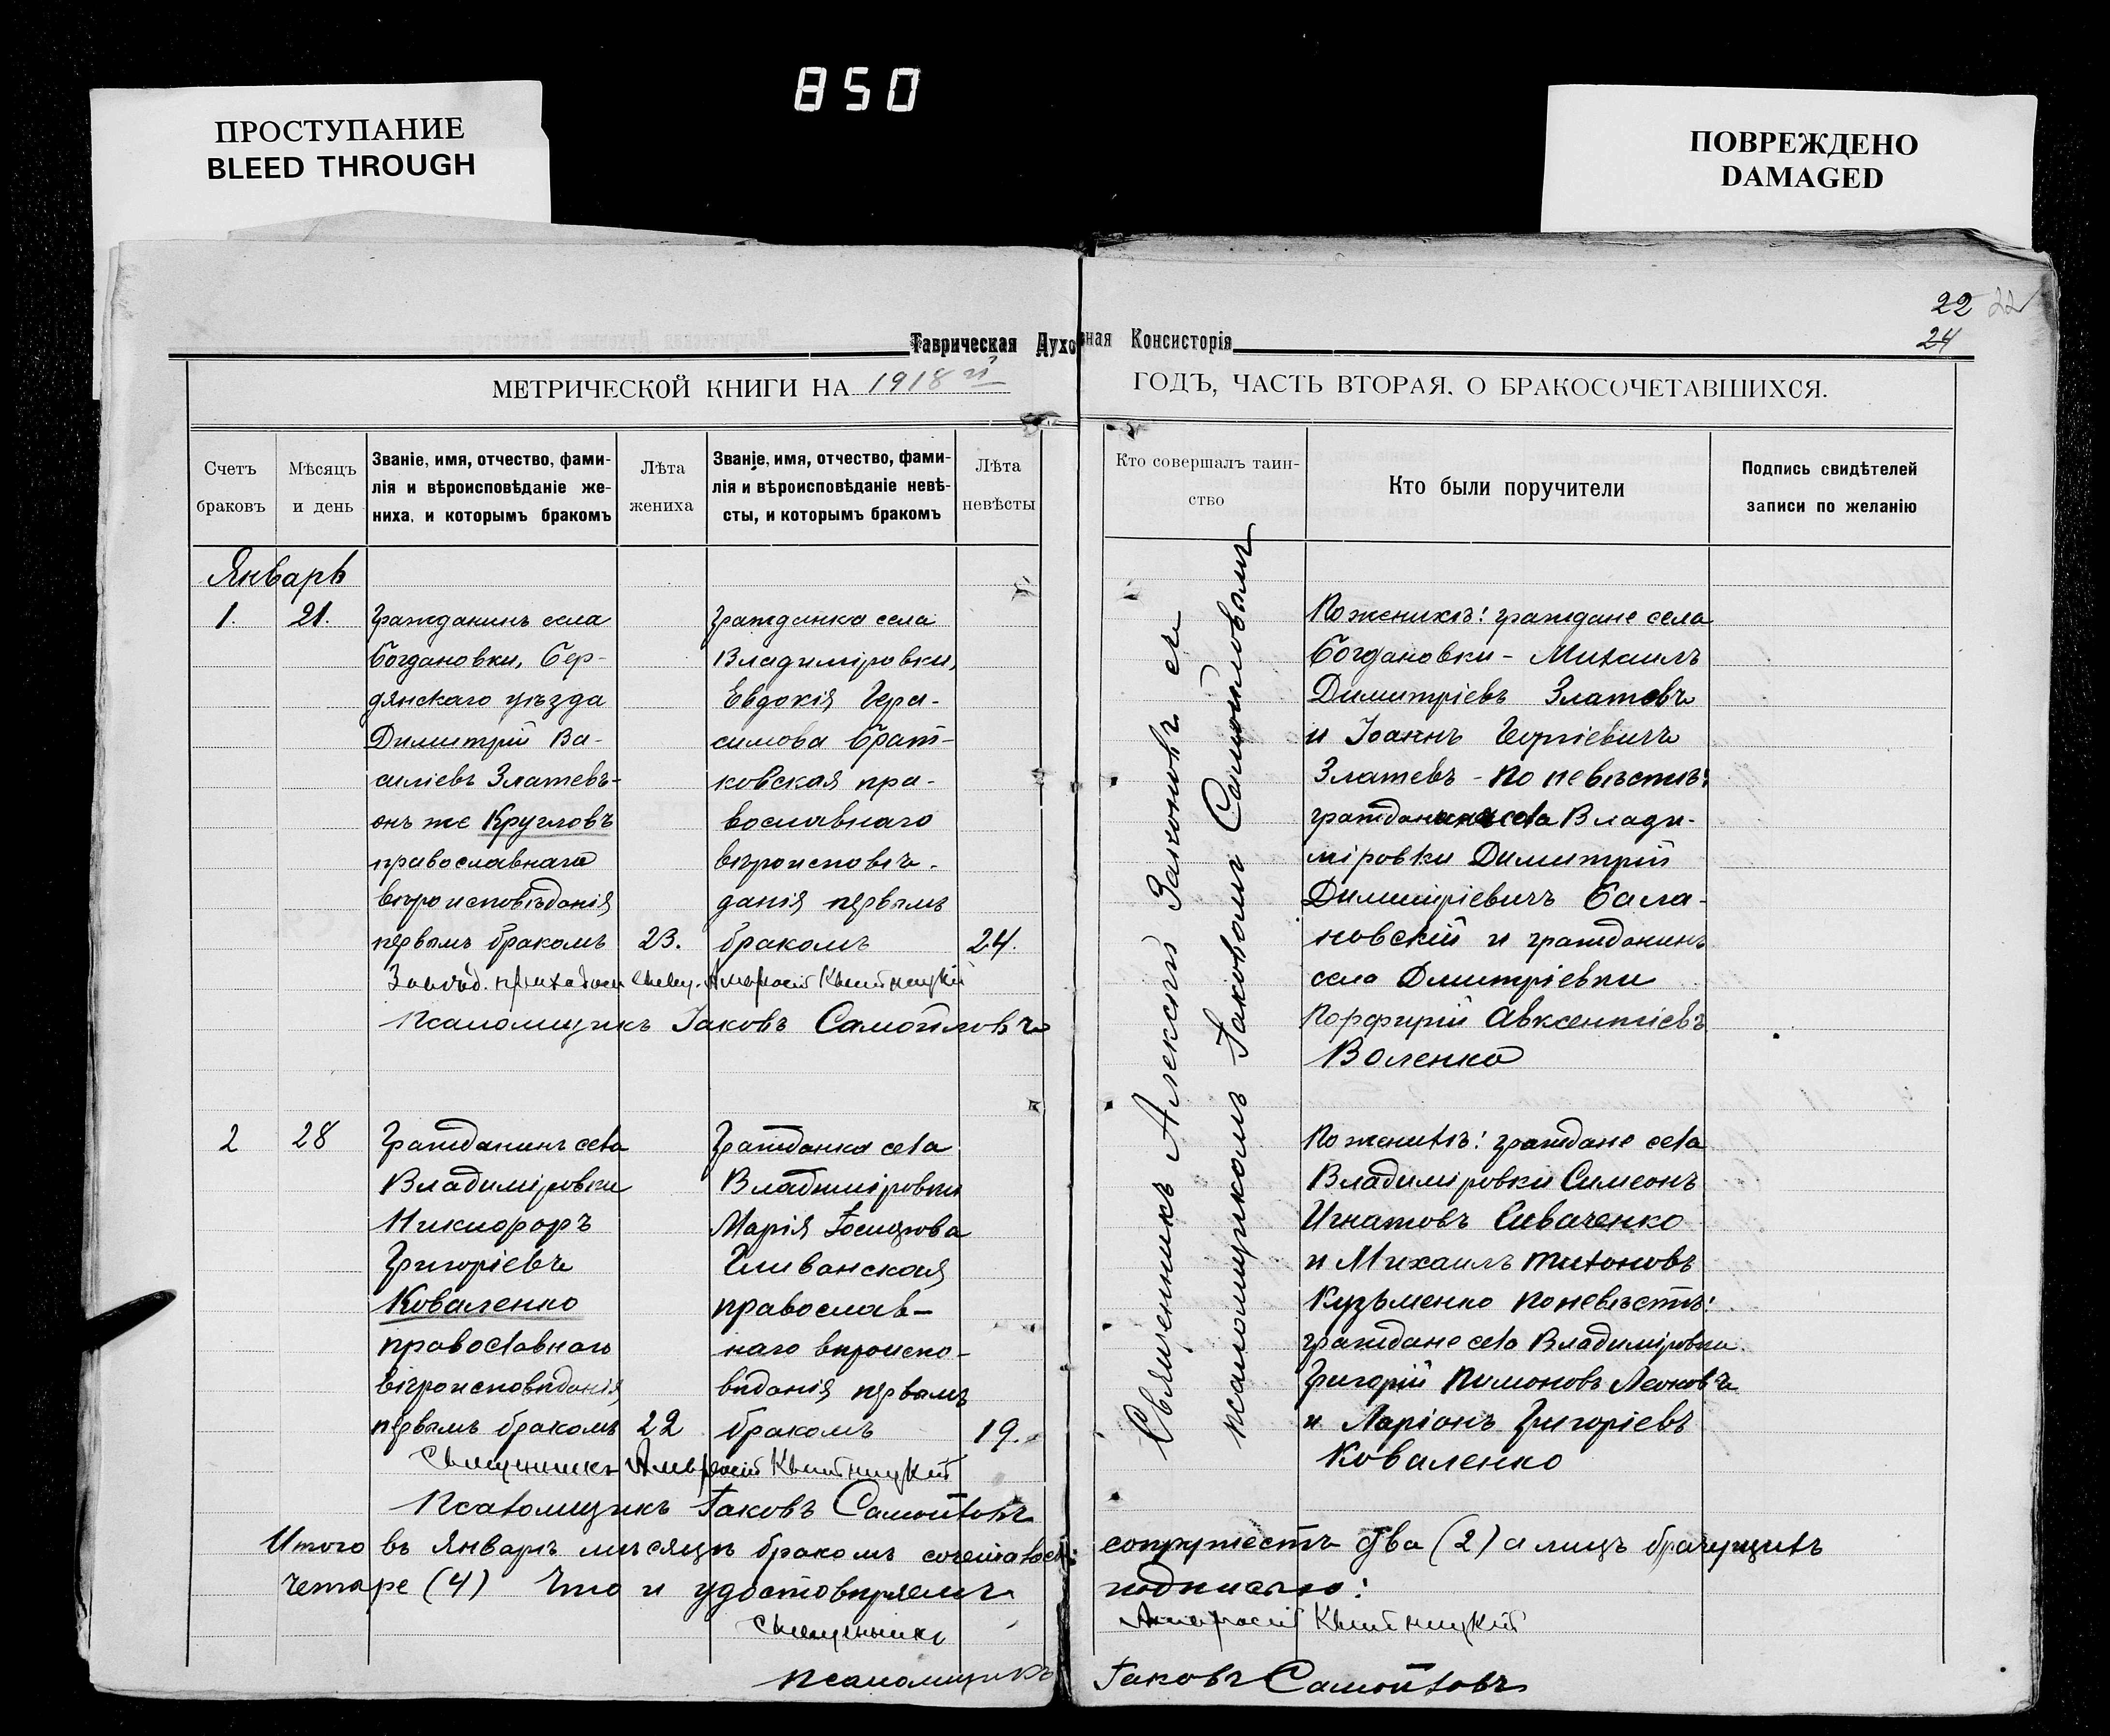 850
ПРОСТУПАНИЕ
BLEED THROUGH
ПОВРЕЖДЕНО
DAMAGED
22 22
24
Таврическая Духовная Консисторія
МЕТРИЧЕСКОЙ КНИГИ НА 1918 й
ГОДЪ, ЧАСТЬ ВТОРАЯ, О БРАКОСОЧЕТАВШИХСЯ.
Счетъ
браковъ
Мѣсяцъ
и день
Званіе, имя, отчество, фами-
лія и вѣроисповѣданіе же-
ниха, и которымъ бракомъ
Лѣта
жениха
Званіе, имя, отчество, фами-
лія и вѣроисповѣданіе невѣ-
сты, и которымъ бракомъ
Лѣта
невѣсты
Кто совершалъ таин-
ство
Кто были поручители
Подпись свидѣтелей
записи по желанію
Январь
1.
21.
Гражданинъ села
Богдановки, Бер-
дянскаго уѣзда
Димитрій Ва-
силіевъ Златевъ-
онъ же Кругловъ
православнаго
вѣроисповѣданія
первымъ бракомъ
23.
Гражданка села
Владиміровки,
Евдокія Гера-
симова Брат-
ковская пра-
вославнаго
вѣроисповѣ-
данія первымъ
бракомъ
24.
Завѣд. приходом свящ. Амвросій Квитницкій
Псаломщикъ Іаковъ Самойловъ
Священникъ Алексій Законовъ съ
псаломщикомъ Іаковомъ Самойловымъ
По женихѣ: граждане села
Богдановки - Михаилъ
Димитріевъ Златовъ
и Іоаннъ Георгіевичъ
Златевъ - По невѣстѣ:
гражданина села Влади-
міровки Димитрій
Димитріевичъ Бала-
новскій и гражданинъ
села Дмитріевки
Порфирій Авксентіевъ
Воленко
2
28
Гражданинъ села
Владиміровки
Никифоръ
Григоріевъ
Коваленко
православнаго
вѣроисповѣданія
первымъ бракомъ
22
Гражданка села
Владиміровки
Марія Іосифова
Гливанская
православ-
наго вѣроиспо-
вѣданія первымъ
бракомъ
19.
Священникъ Амвросій Квитницкій
Псаломщикъ Іаковъ Самойловъ
По женихѣ: граждане села
Владиміровки Симеонъ
Игнатовъ Сиваченко
и Михаилъ Тихоновъ
Кузьменко По невѣстѣ:
граждане села Владиміровки
Григорій Пимоновъ Леоновъ
и Ларіонъ Григоріевъ
Коваленко
Итого въ Январѣ мѣсяцѣ бракомъ сочеталось: сопружествъ два (2) а лицъ брачущихъ
четыре (4) Что и удостовѣряемъ подписью:
Священникъ Амвросій Квитницкій
псаломщикъ Іаковъ Самойловъ